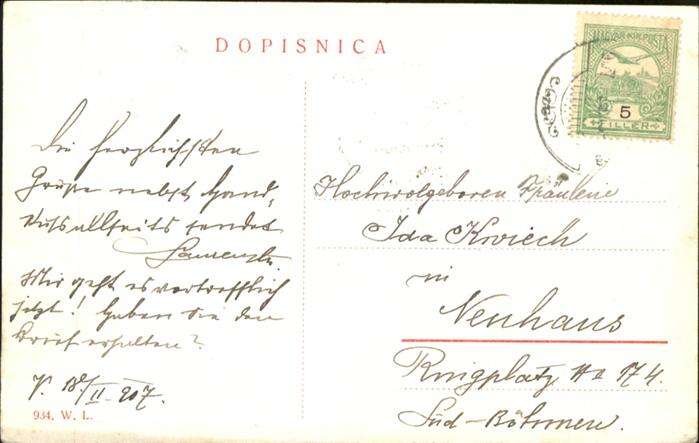 DOPISNICA
MAGYAR KIR. POSTA
5
FILLER
Die herzlichsten
Grüße nebst Hand,
Kuß allseits sendet
Mir geht es vortrefflich
jetzt! Haben Sie den
Brief erhalten?
V. 18/II 907.
934. W. L.
Hochwolgeboren Fräulein
Ida Kwiech
in
Neuhaus
Ringplatz No 174.
Süd-Böhmen.